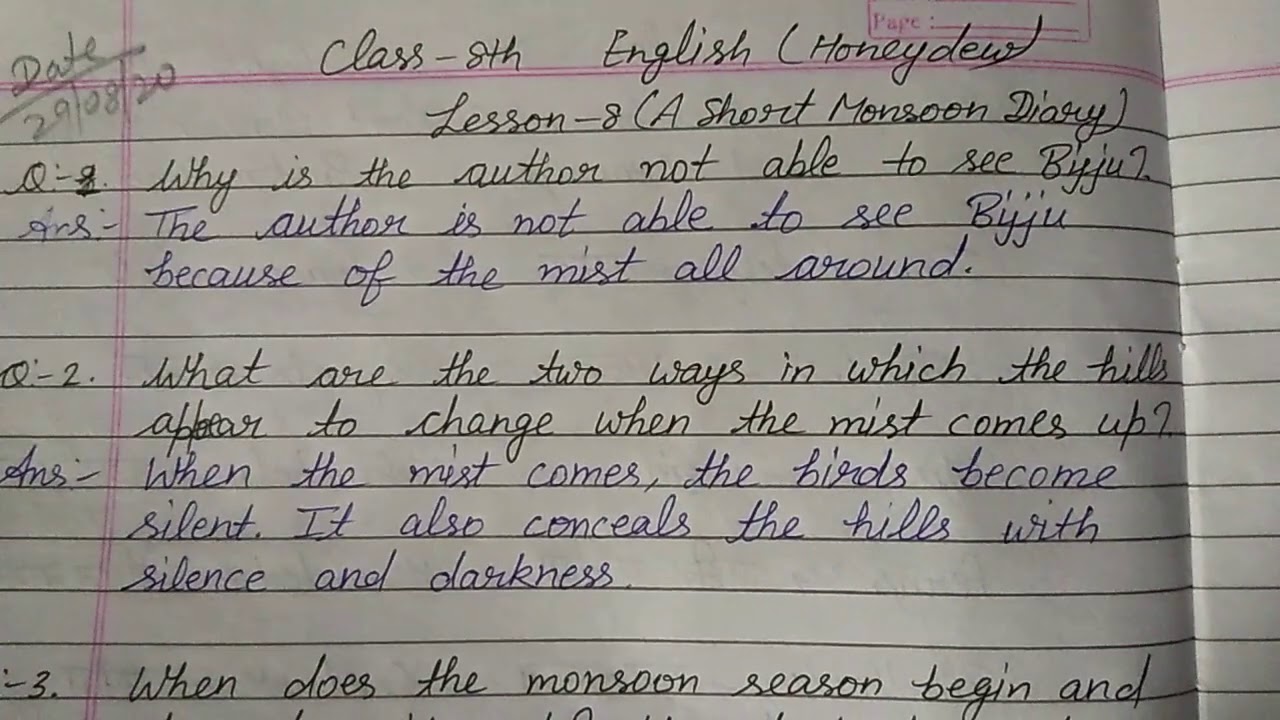 Page :
Date
29/08/20
Class - 8th English (Honeydew)
Lesson - 8 (A Short Monsoon Diary)
Q:- 1. Why is the author not able to see Bijju?
Ans:- The author is not able to see Bijju
because of the mist all around.
Q:- 2. What are the two ways in which the hills
appear to change when the mist comes up?
Ans:- When the mist comes, the birds become
silent. It also conceals the hills with
silence and darkness.
:- 3. When does the monsoon season begin and